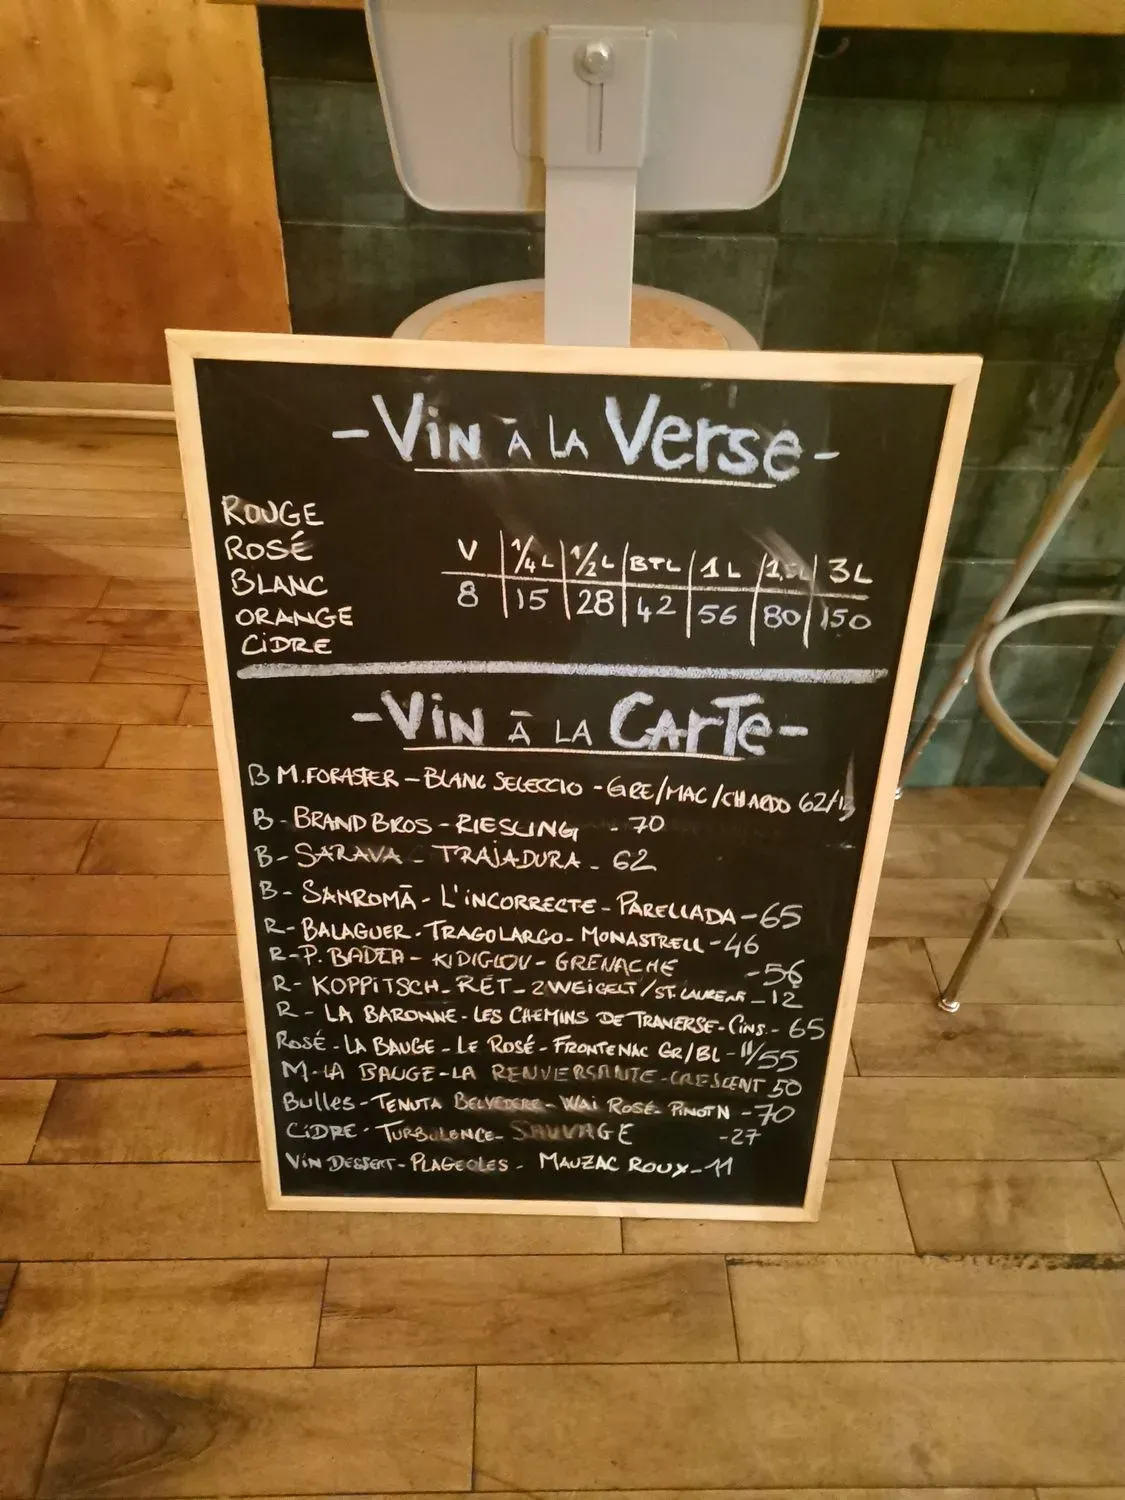 - Vin à la Verse -
ROUGE
ROSÉ
BLANC
ORANGE
CIDRE
V 1/4 L 1/2 L BTL 1 L 3L
8 15 28 42 56 80 150
- Vin à la Carte -
B M. FORASTER - BLANC SELECCIO - GRE/MAC/CHARDO 62/13
B - BRAND BROS - RIESLING - 70
B - SARAVA - TRAJADURA - 62
B - SANROMÀ - L'INCORRECTE - PARELLADA - 65
R - BALAGUER - TRAGOLARGO - MONASTRELL - 46
R - P. BADEA - KIDIGLOU - GRENACHE - 56
R - KOPPITSCH - RÉT - ZWEIGELT / ST. LAURENT - 12
R - LA BARONNE - LES CHEMINS DE TRAVERSE - Cins. - 65
ROSÉ - LA BAUGE - LE ROSÉ - FRONTENAC GR/BL - 11/55
M - LA BAUGE - LA RENVERSANTE - CRESCENT 50
Bulles - TENUTA BELVEDERE - WAI ROSÉ - PINOT N - 70
CIDRE - TURBULENCE - SAUVAGE - 27
VIN DESSERT - PLAGEOLES - MAUZAC ROUX - 11